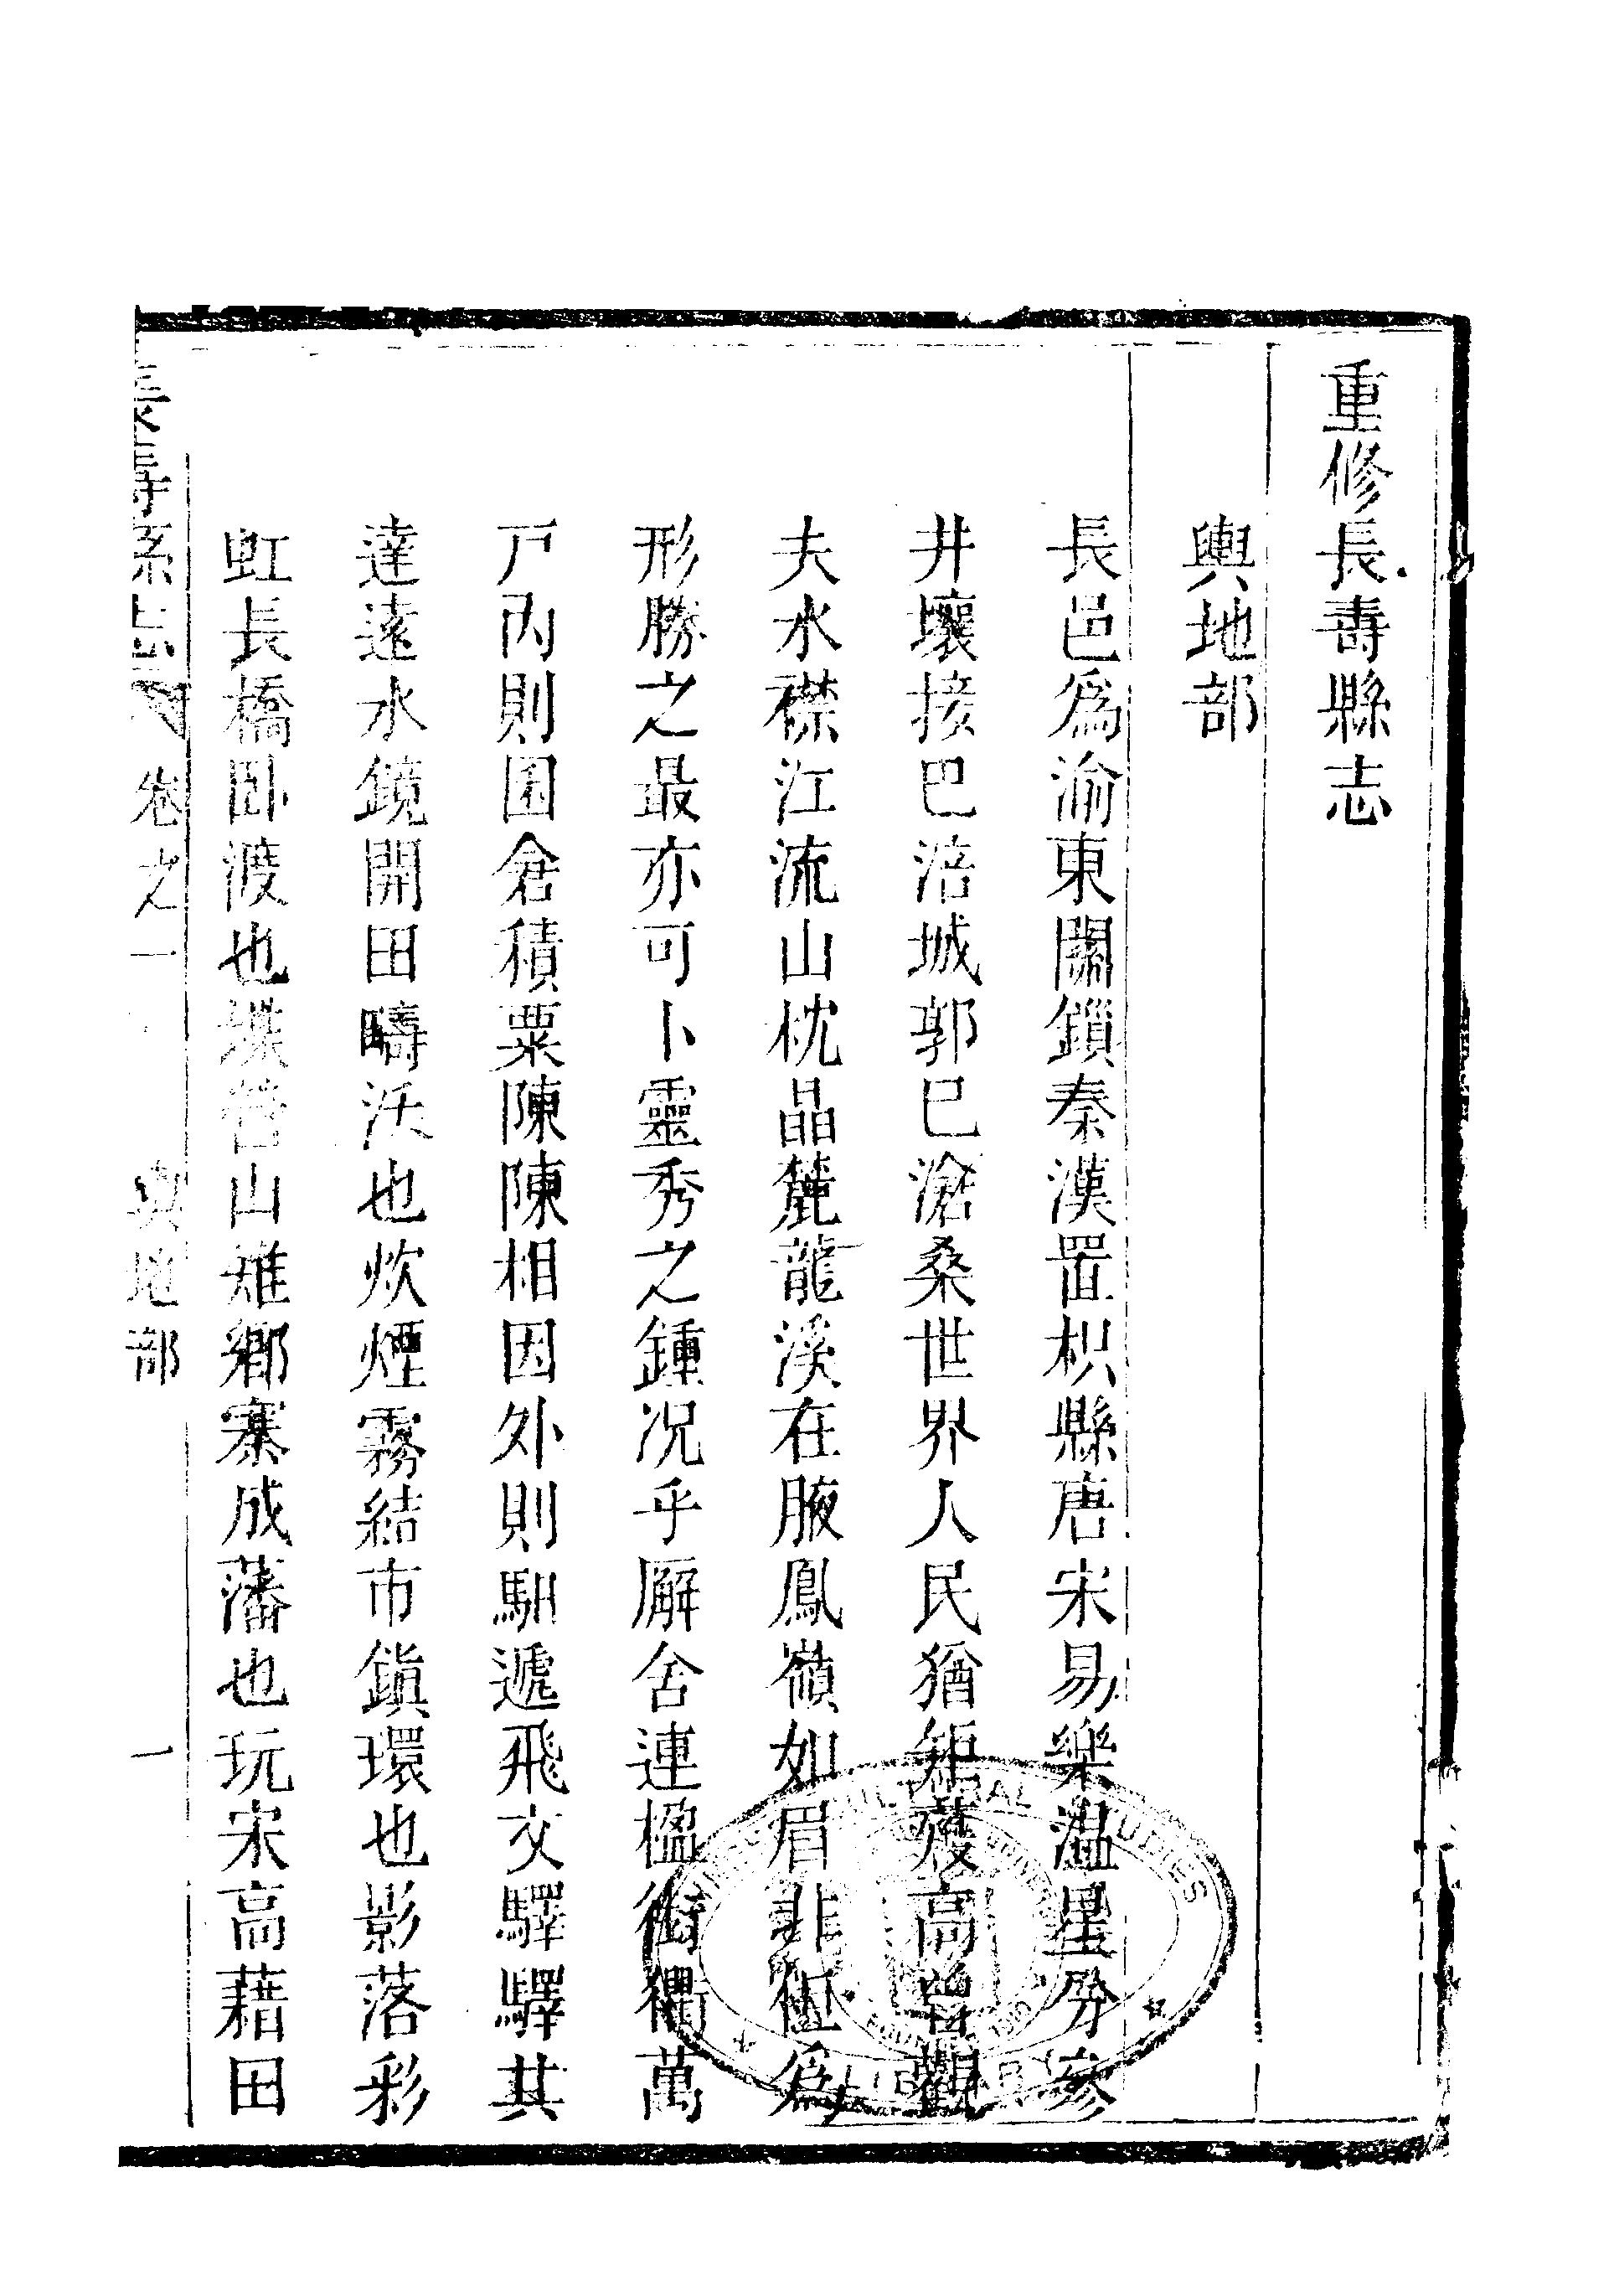 重修長壽縣志
輿地部
長邑爲渝東關鎖秦漢置枳縣唐宋易樂溫星分參
井壤接巴涪城郭已滄桑世界人民猶矩矱高曾觀
夫水襟江流山枕晶麓龍溪在腋鳳嶺如眉非徒爲
形勝之最亦可卜靈秀之鍾况乎廨舍連楹衡獨萬
戸內則囷倉積粟陳陳相因外則馹遞飛文驛驛其
達遠水鏡開田疇沃也炊煙霧結市鎮環也影落彩
虹長橋卧渡也堞營山堆鄉寨成藩也玩宋高藉田
長壽縣志 卷之一 輿地部 一
CULTURAL STUDIES
LIBRARY